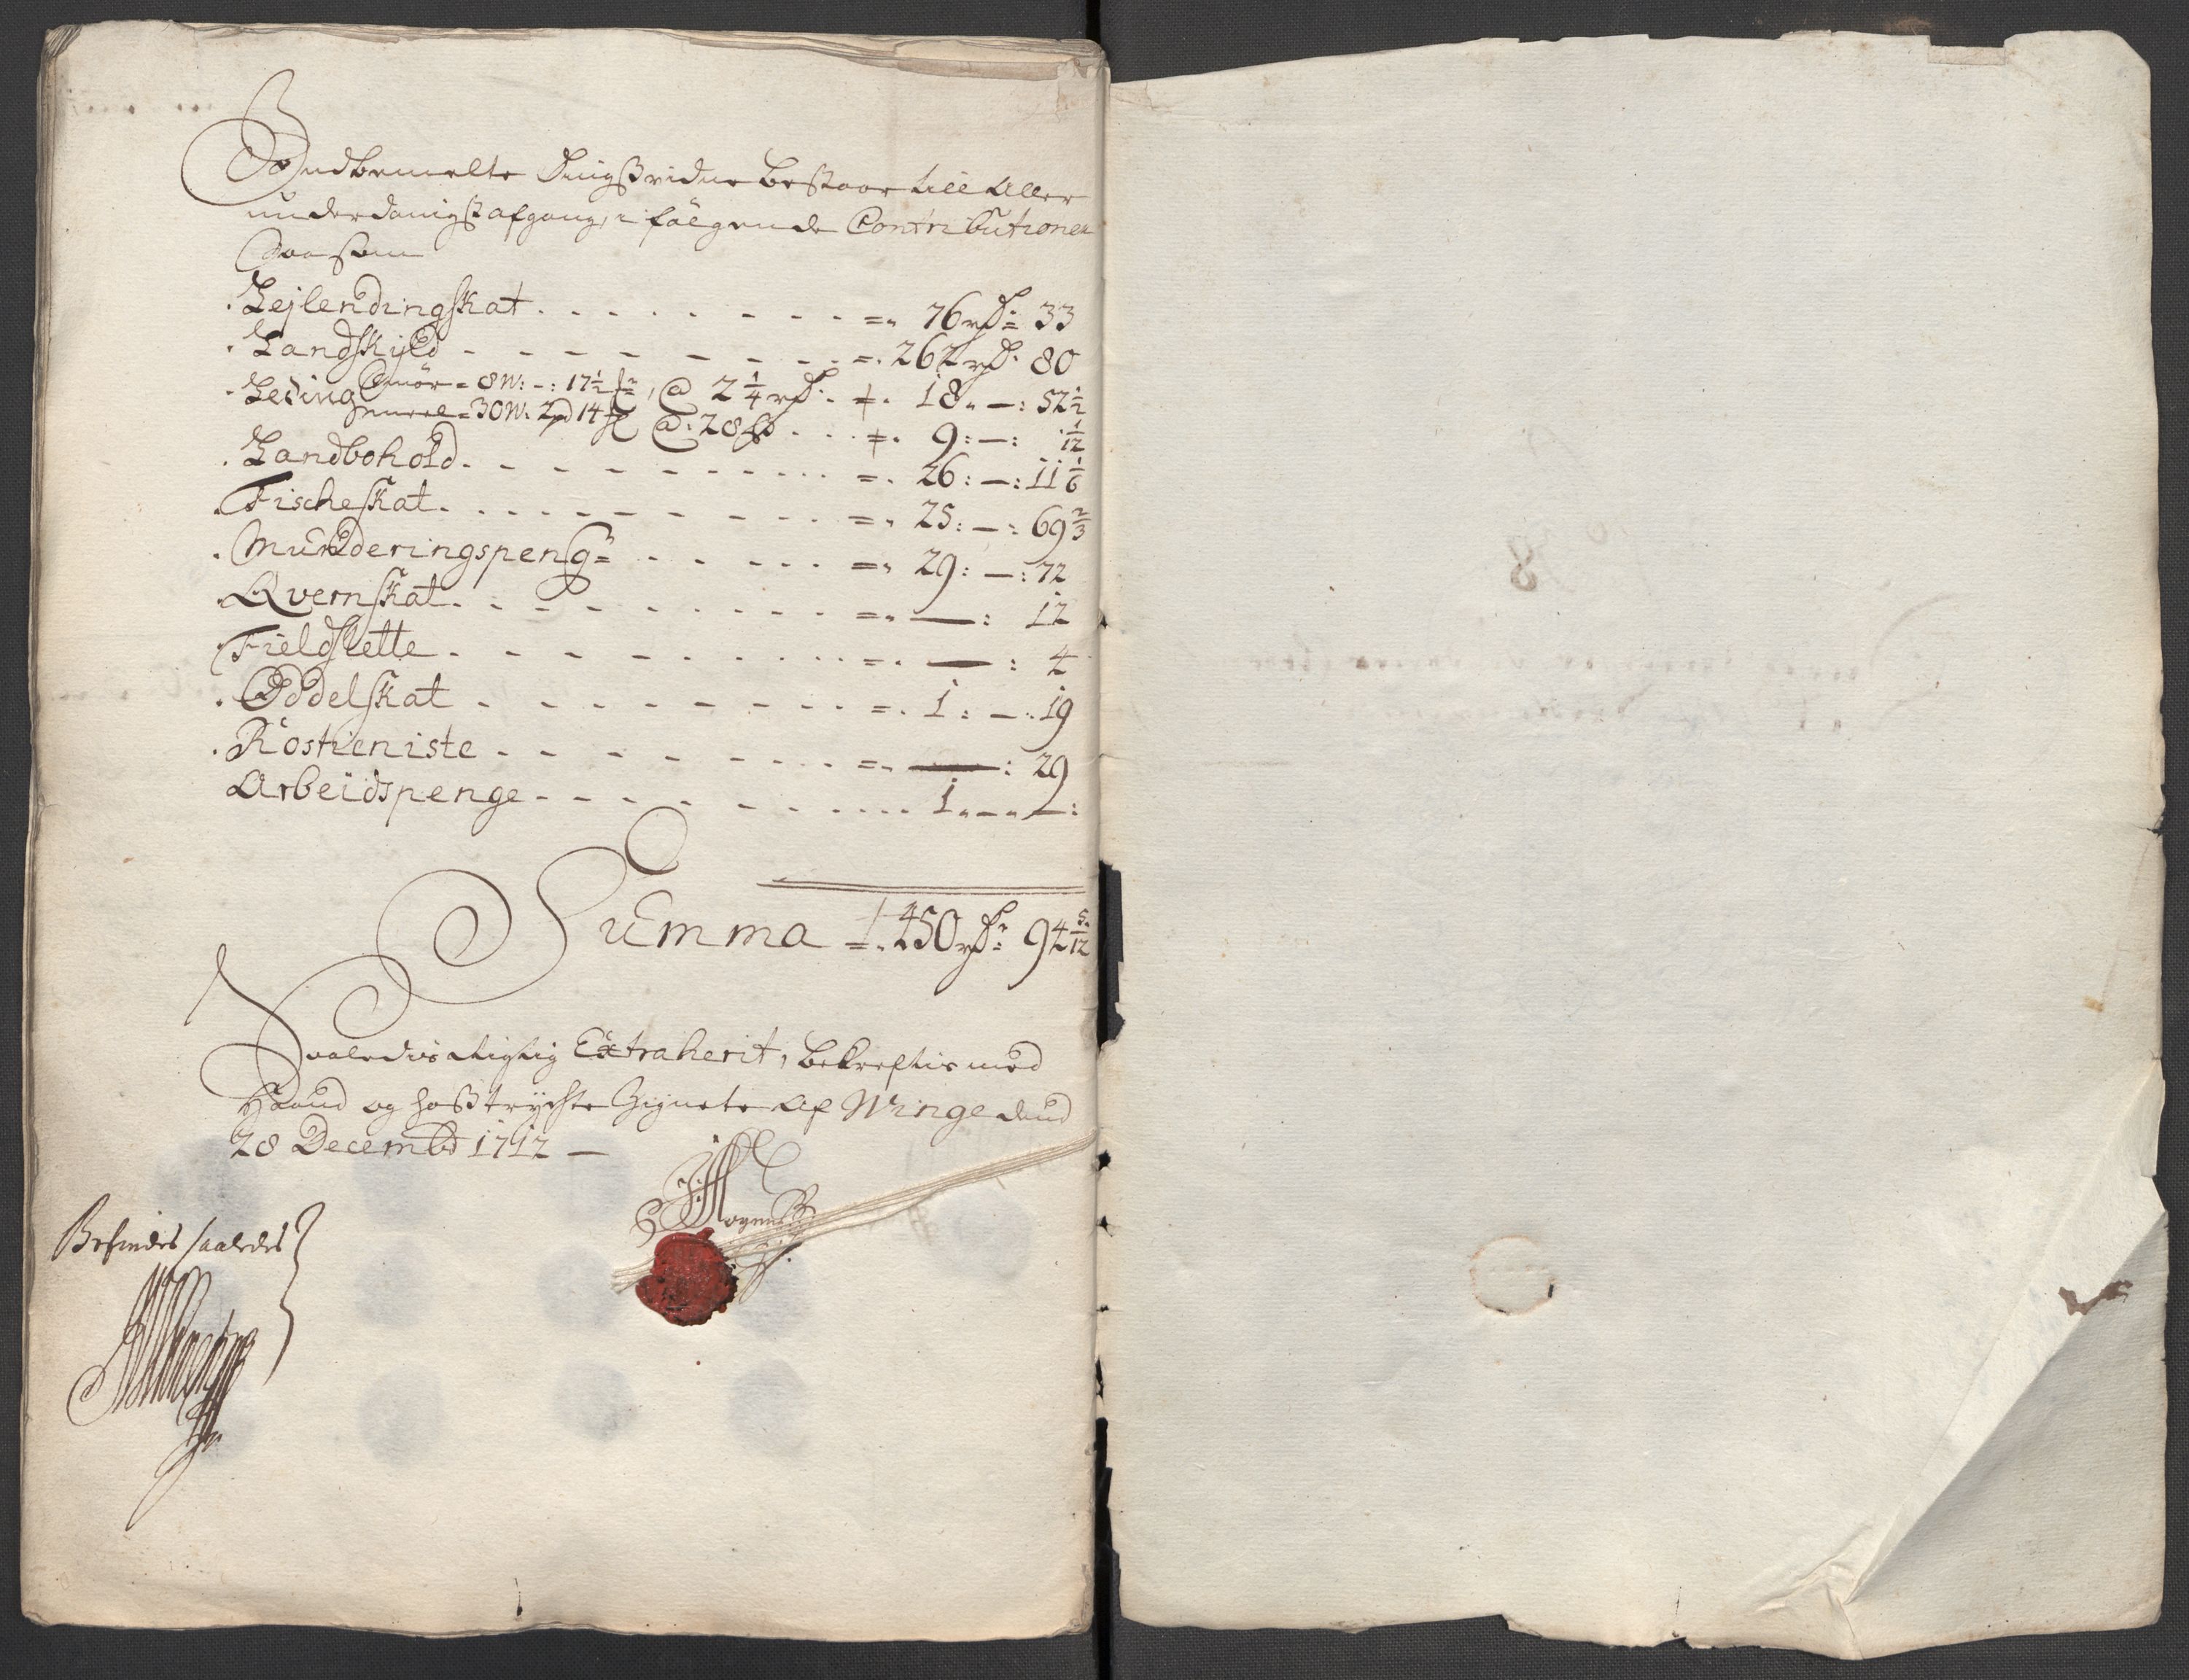 Indbemelte Tingsvidne bestaar till Aller
underdanigst afgang, i følgende Contributioner
Saasom
Lejlendingskat = 76 rdr 33
Landskyld = 262 rdr 80
Leding Smør = 8 W: –: 17½ , @ 2¼ rdr. 18 –: 52½
meel = 30 W: 2 pd 14 @: 28 s 9: –: 1/12
Landbohold = 26: –: 11 1/6
Fischeskat = 25: –: 69 2/3
Munderingspeng = 29: –: 72
Qvernskat = — : 12
Fieldslette = — : 4
Oddelskat = 1: –: 19
Rostieniste = — : 29
Arbeidspenge 1 – – :
Summa = 450 rdr 94 5/12
Saaledis rigtig Extraherit, bekreftis med
Haand og hostrychte Zignete Af Winge dend
28 Decembr 1712 —
Befindes saaledes